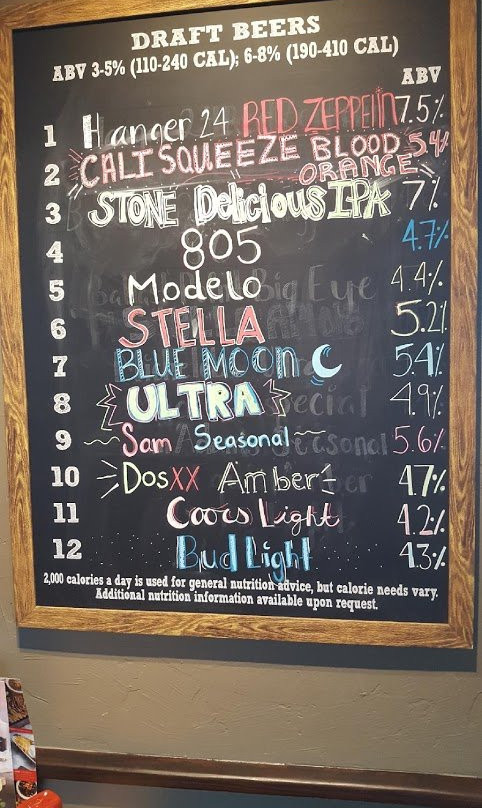 DRAFT BEERS
ABV 3-5% (110-240 CAL); 6-8% (190-410 CAL)
ABV
1 Hanger 24 RED ZEPPElin 7.5%
2 CALI SQUEEZE BLOOD ORANGE 5.4%
3 STONE Delicious IPA 7%
4 805 4.7%
5 Modelo 4.4%
6 STELLA 5.2%
7 BLUE MOON 5.4%
8 ULTRA 4.9%
9 Sam Seasonal 5.6%
10 DosXX Amber 4.7%
11 Coors Light 4.2%
12 Bud Light 4.3%
2,000 calories a day is used for general nutrition advice, but calorie needs vary.
Additional nutrition information available upon request.